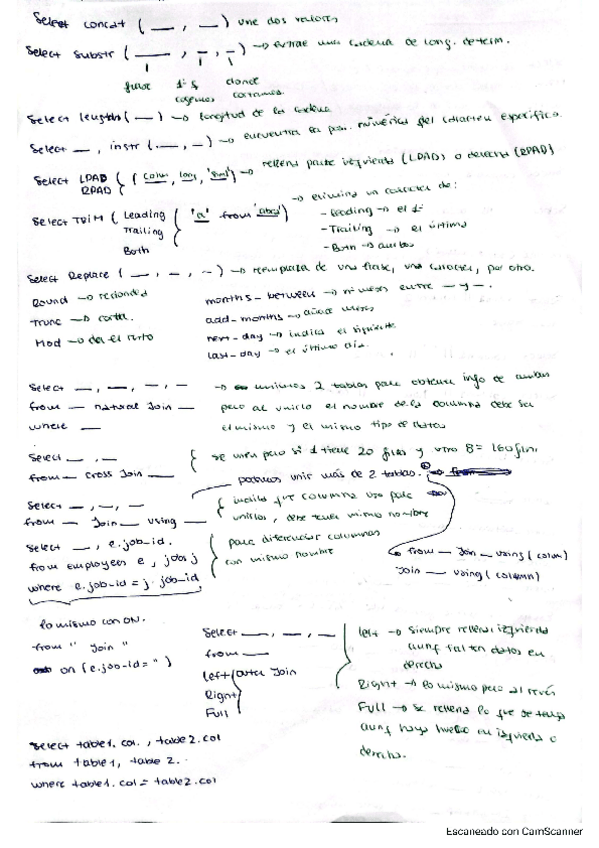 Select concat ( __ , __ ) une dos valores
Select substr ( __ , __ , __ ) → extrae una cadena de long. determ.
frase 1º q cogemos donde cortamos
Select length ( __ ) → longitud de la cadena
Select __ , instr ( __ , __ ) → encuentra la pos. numérica del caracter específico.
Select LPAD RPAD ( colum, long, 'simb' ) → rellena parte izquierda (LPAD) o derecha (RPAD)
Select TRIM ( Leading Trailing Both 'a' from 'abcd' ) → elimina un caracter de:
- Leading → el 1º
- Trailing → el último
- Both → ambos
Select Replace ( __ , __ , __ ) → reemplaza de una frase, una caracter, por otro.
Round → redondea
Trunc → corta.
Mod → da el resto
months_between → nº meses entre __ y __ .
add_months → añade meses
next_day → indica el siguiente
last_day → el último día.
Select __ , __ , __ , __
from __ natural join __
where __
→ unimos 2 tablas para obtener info de ambas
pero al unirlo el nombre de la columna debe ser
el mismo y el mismo tipo de datos
Select __ , __
from __ cross join __
se unen pero si 1 tiene 20 filas y otro 8 = 160 filas.
podemos unir más de 2 tablas.
Select __ , __ , __
from __ join __ using __
indica que columna uso para
unirlos, debe tener mismo nombre
from __ join __ using (colum)
join __ using (column)
Select __ , e.job_id.
from employees e, jobs j
where e.job_id = j.job_id
para diferenciar columnas
con mismo nombre
lo mismo con ON.
from " join "
on (e.job_id = " )
Select __ , __ , __ , __
from __
left/outer join
Right
Full
left → siempre rellena izquierda
aunq falten datos en
derecha
Right → lo mismo pero al revés
Full → se rellena lo que se tenga
aunq haya hueco en izquierda o
derecha.
Select table1.col. , table2.col
from table1, table2.
where table1.col = table2.col
Escaneado con CamScanner